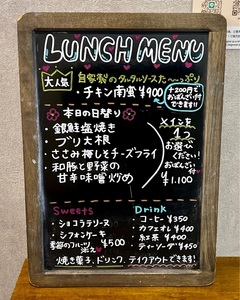 LUNCH MENU
大人気
自家製のタルタルソースたーーっぷり
・チキン南蛮 ¥900
+200円で
おばんざい付
できます!!
本日の日替り
・銀鮭塩焼き
・ブリ大根
・ささみ梅しそチーズフライ
・和豚と野菜の
甘辛味噌炒め
メインを
1つ
お選び
ください!
おばんざい
付き
¥1.100
Sweets
・ショコラテリーヌ
・シフォンケーキ
季節のフルーツ
添え
¥500
Drink
・コーヒー ¥350
・カフェオレ ¥400
・紅茶 ¥400
・ティーソーダ ¥450
焼き菓子、ドリンク、テイクアウトできます!